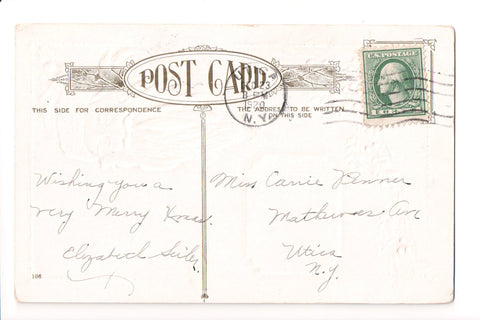 POST CARD
THIS SIDE FOR CORRESPONDENCE
THE ADDRESS TO BE WRITTEN
ON THIS SIDE
23
1920
N.Y.
U.S. POSTAGE
Wishing you a
very Merry Xmas.
Elizabeth
Miss Carrie
Mathewes Ave
Utica
N.Y.
106